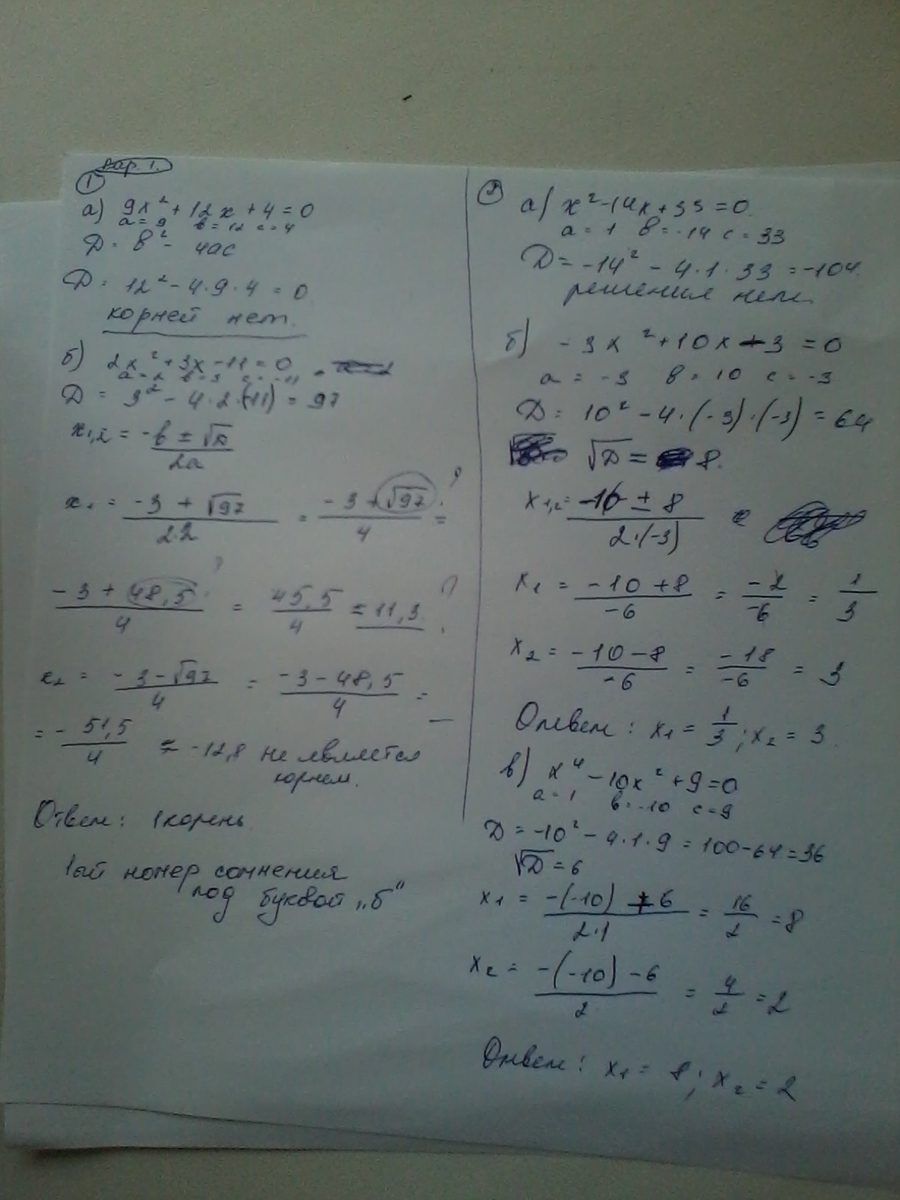 Вар. 1.
1
а) 9x² + 12x + 4 = 0
a = 9 в = 12 c = 4
D = в² - 4ac
D = 12² - 4·9·4 = 0
корней нет.
б) 2x² + 3x - 11 = 0
a = 2 в = 3 c = -11
D = 3² - 4·2·(-11) = 97
x₁,₂ = (-в ± √D) / 2a
x₁ = (-3 + √97) / 2·2 = (-3 + √97) / 4 = ?
(-3 + 48,5) / 4 = 45,5 / 4 = 11,3 ?
x₂ = (-3 - √97) / 4 = (-3 - 48,5) / 4 =
= - 51,5 / 4 ≈ -12,8 не является
корнем.
Ответ: 1 корень
1ый номер сомнения
под буквой „б“
2
а) x² - 14x + 33 = 0
a = 1 в = -14 c = 33
D = -14² - 4·1·33 = -104
решения нет.
б) -3x² + 10x - 3 = 0
a = -3 в = 10 c = -3
D = 10² - 4·(-3)·(-3) = 64
√D = 8.
x₁,₂ = (-10 ± 8) / 2·(-3)
x₁ = (-10 + 8) / -6 = -2 / -6 = 1 / 3
x₂ = (-10 - 8) / -6 = -18 / -6 = 3
Ответ: x₁ = 1/3; x₂ = 3
в) x⁴ - 10x² + 9 = 0
a = 1 в = -10 c = 9
D = -10² - 4·1·9 = 100 - 64 = 36
√D = 6
x₁ = (-(-10) + 6) / 2·1 = 16 / 2 = 8
x₂ = (-(-10) - 6) / 2 = 4 / 2 = 2
Ответ: x₁ = 8; x₂ = 2